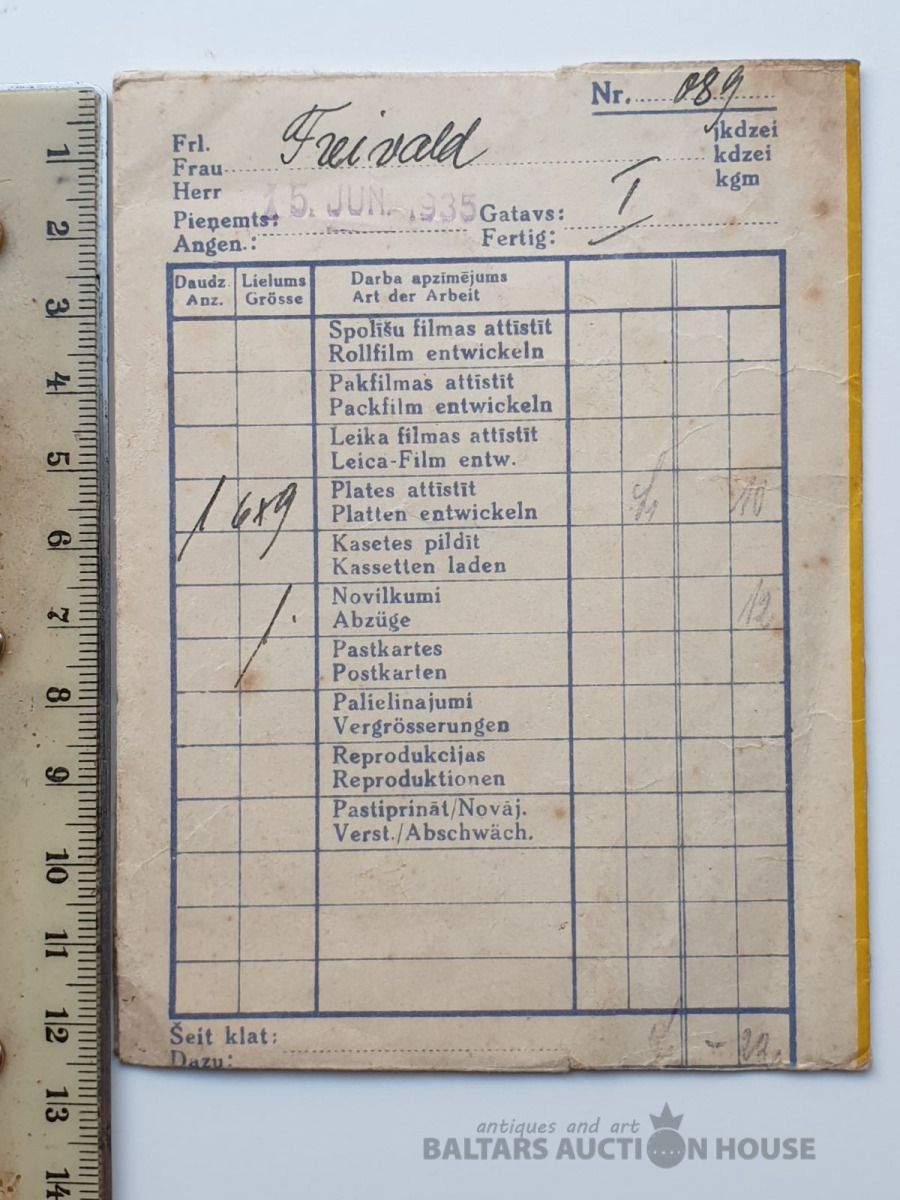 Nr. 089
Frl.
Frau Freivald
Herr
jkdzei
kdzei
kgm
Pieņemts: 15. JUN. 1935 Gatavs: I
Angen.: Fertig:
Daudz Lielums Darba apzīmējums
Anz. Grösse Art der Arbeit
Spolīšu filmas attīstīt
Rollfilm entwickeln
Pakfilmas attīstīt
Packfilm entwickeln
Leika filmas attīstīt
Leica-Film entw.
1 6x9 Plates attīstīt 10
Platten entwickeln
Kasetes pildīt
Kassetten laden
1. Novilkumi 12
Abzüge
Pastkartes
Postkarten
Palielinajumi
Vergrösserungen
Reprodukcijas
Reproduktionen
Pastiprināt/Novāj.
Verst./Abschwäch.
Šeit klat: - 22
Dazu:
1
2
3
4
5
6
7
8
9
10
11
12
13
14
antiques and art
BALTARS AUCTION HOUSE